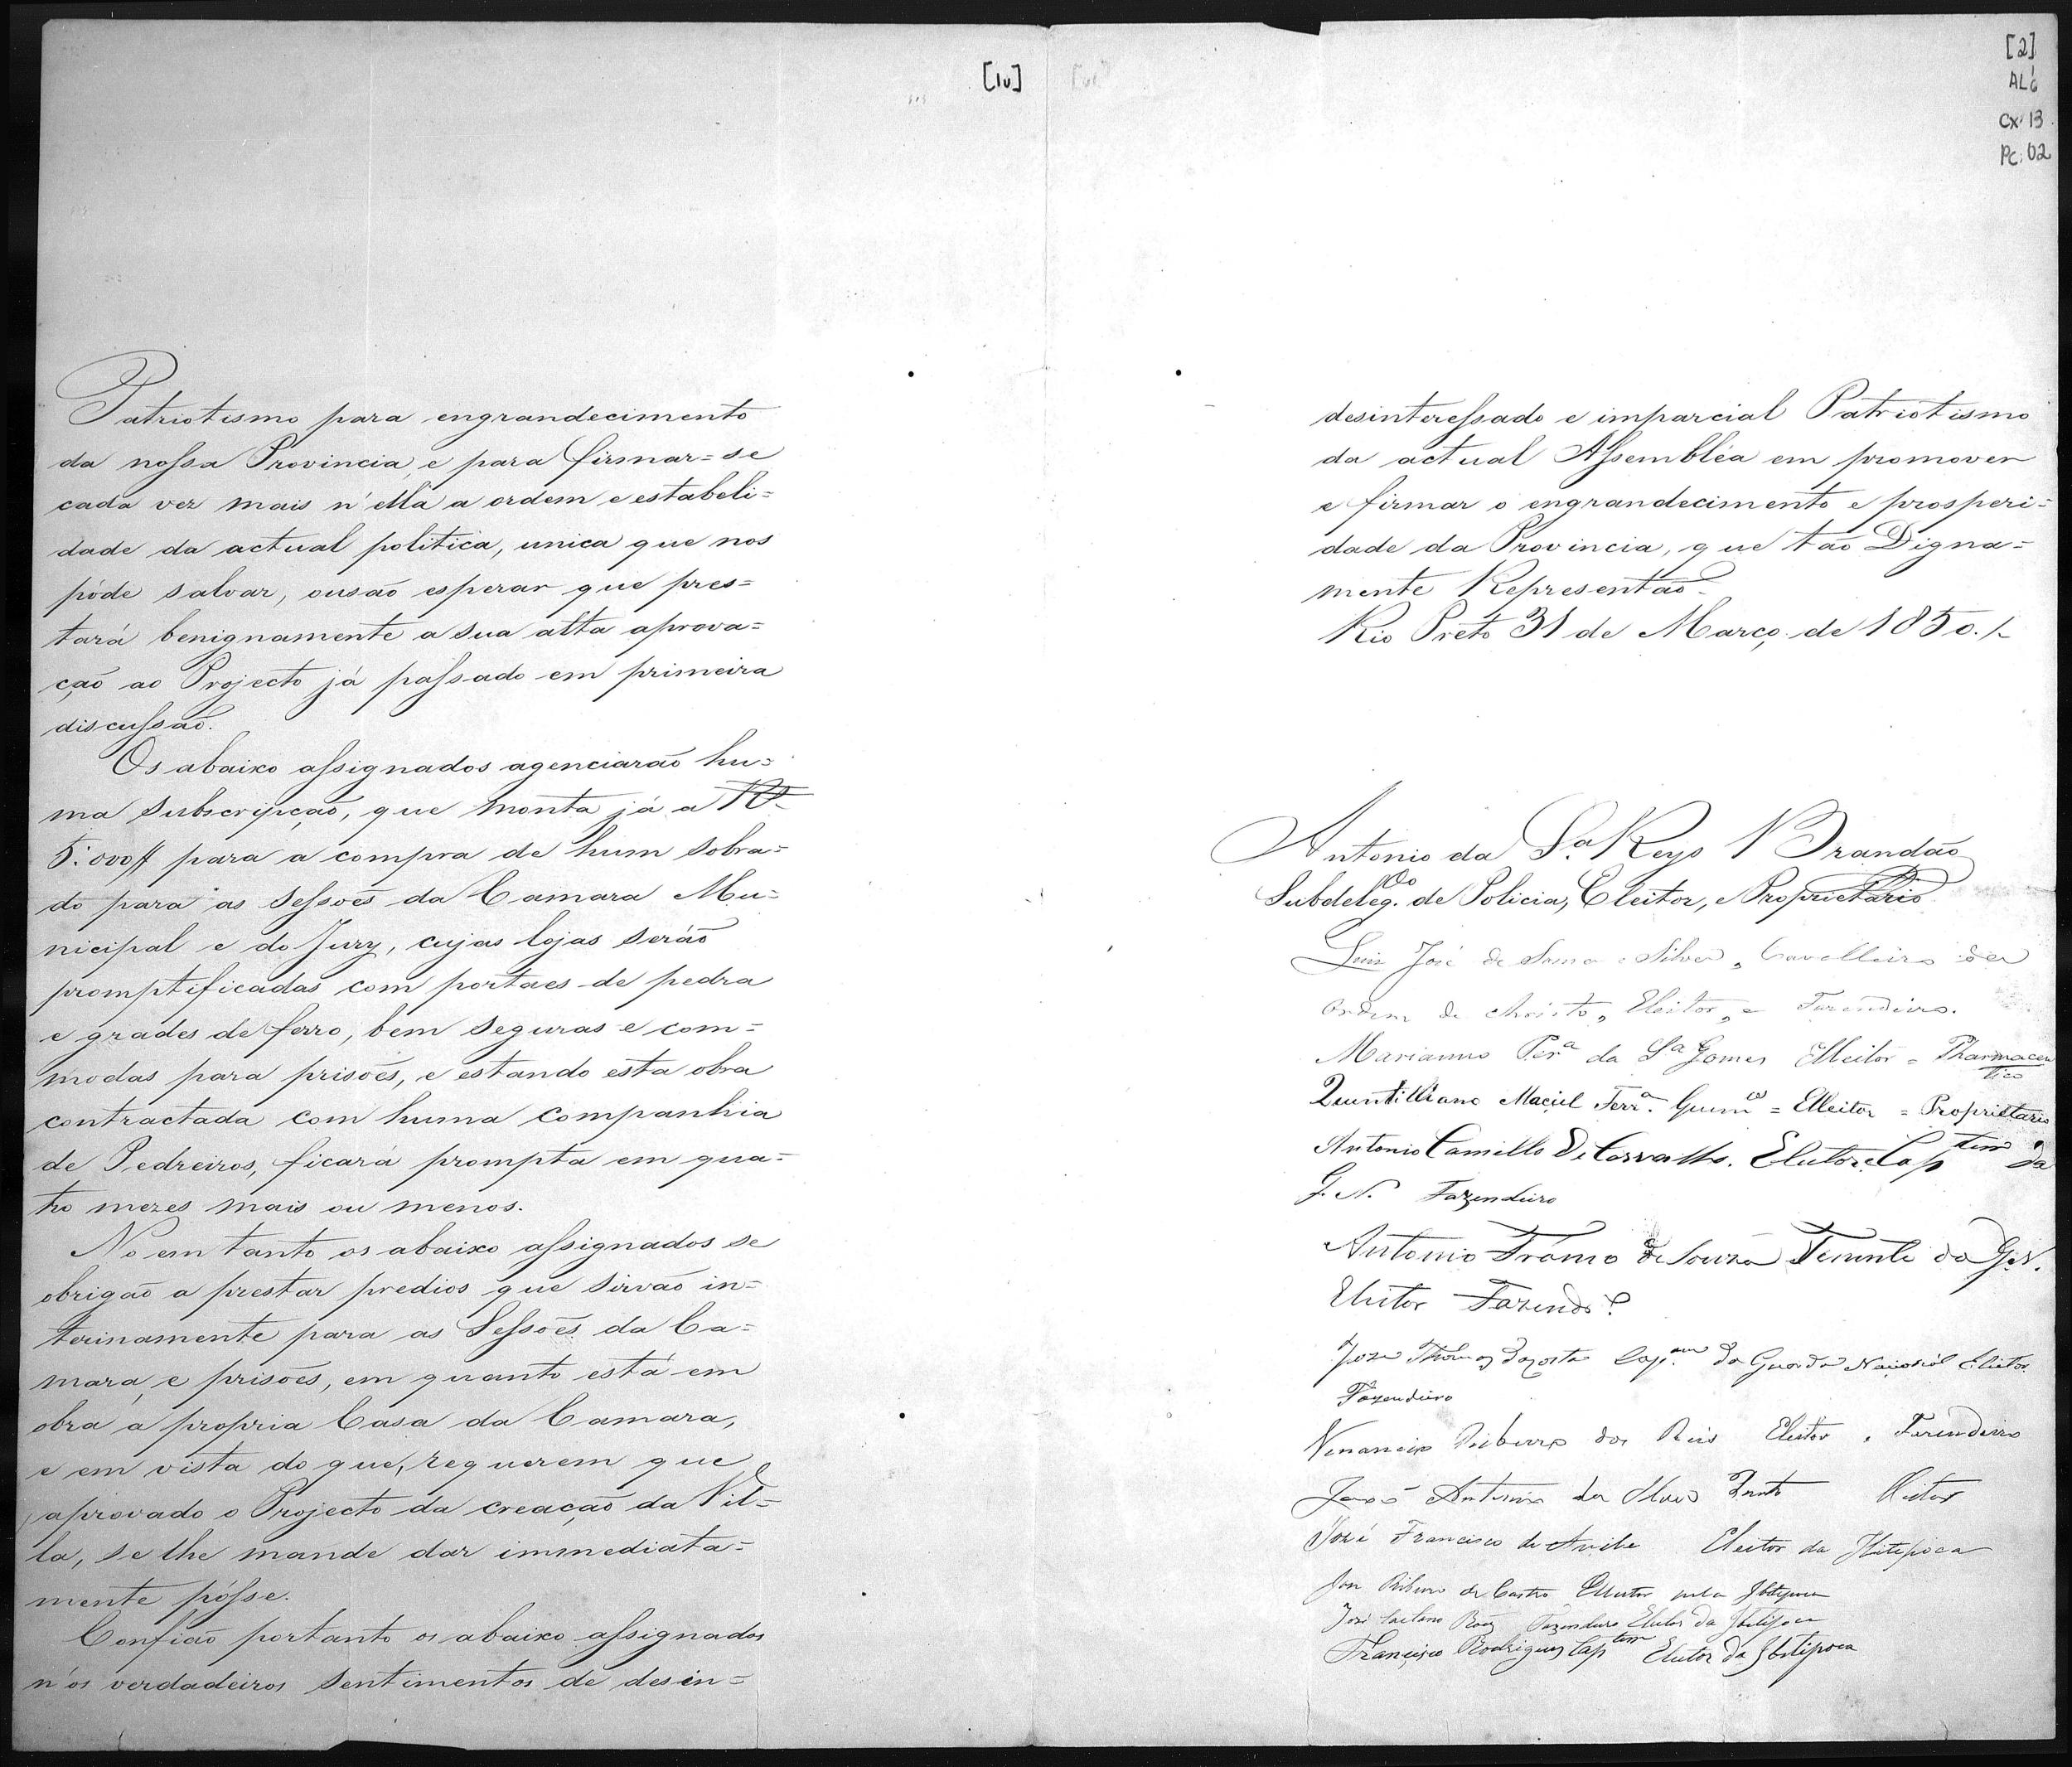 [1v]
Patriotismo para engrandecimento
da nossa Provincia, e para firmar=se
cada vez mais n'ella a ordem e estabeli=
dade da actual politica, unica que nos
póde salvar, ousaõ esperar que pres=
tará benignamente a sua alta aprova=
çaõ ao Projecto já passado em primeira
discussaõ.
Os abaixo assignados agenciaraõ hu=
ma subscripçaõ, que monta já a R$
5:000$ para a compra de hum sobra=
do para as sessoẽs da Camara Mu=
nicipal e do Jury, cujas lojas seráõ
promptificadas com portaes de pedra
e grades de ferro, bem seguras e com=
modas para prisoẽs, e estando esta obra
contractada com huma companhia
de Pedreiros, ficará prompta em qua=
tro mezes mais ou menos.
No em tanto os abaixo assignados se
obrigaõ a prestar predios que sirvaõ in=
terinamente para as Sessoẽs da Ca=
mara, e prisoẽs, em quanto está em
obra a propria Casa da Camara,
e em vista do que, requerem que
aprovado o Projecto da creaçaõ da Vil=
la, se lhe mande dar immediata=
mente pósse.
Confiaõ portanto os abaixo assignados
n'os verdadeiros sentimentos de desin=
[2]
AL6
cx: 13
Pc: 02
desinteressado e imparcial Patriotismo
da actual Assembléa em promover
e firmar o engrandecimento e prosperi=
dade da Provincia, que taõ Digna=
mente Representaõ.
Rio Preto 31 de Março de 1850./.
Antonio da S.a Reys Brandão
Subdeleg.do de Policia, Eleitor, e Proprietario
Luis José de Sousa e Silva, Cavalleiro da
Ordem de Christo, Eleitor, e Fazendeiro.
Marianno Per.a da S.a Gomes Elleitor = Pharmaceu
tico
Quintilliano Maciel Ferr.a Guim.es = Elleitor = Proprietario
Antonio Camillo de Carvalho. Eleitor. Cap.tam da
G. N. Fazendeiro
Antonio de Souza Tenente da G. N.
Eleitor Fazend.o
Jose Thomaz da Costa Cap.am da Guarda Nacional Eleitor
Fazendeiro
Venancio Ribeiro dos Reis Eleitor, Fazendeiro
Antonio da Eleitor
José Francisco de Eleitor da Ibitipoca
Ribeiro de Castro Elleitor pela Ibitipoca
José Caetano Roiz Fazendeiro Eleitor da Ibitipoca
Francisco Rodrigues Cap.tam Eleitor da Ibitipoca